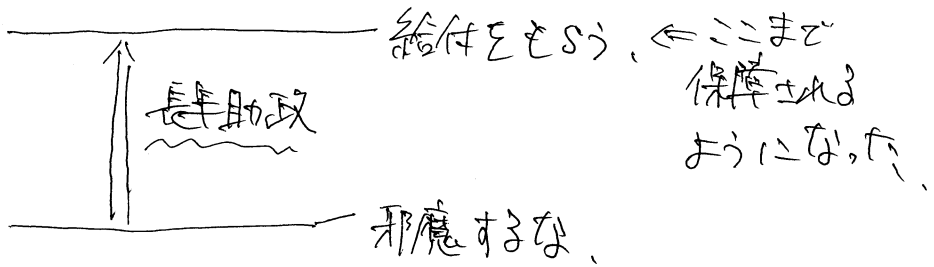 給付をもらう、⇐ここまで
保障される
ようになった、
助政
邪魔するな、